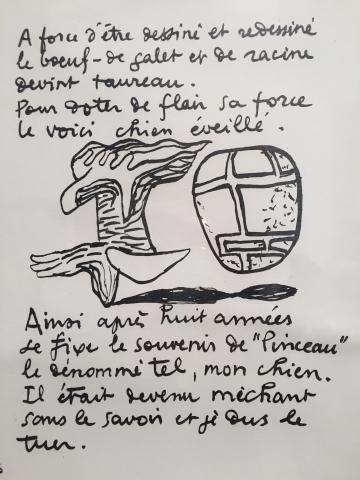 A force d'être dessiné et redessiné
le bœuf-de galet et de racine
devint taureau.
Pour doter de flair sa force
le voici chien éveillé.
Ainsi après huit années
se fixe le souvenir de "Pinceau"
le dénommé tel, mon chien.
Il était devenu méchant
sans le savoir et je dus le
tuer.